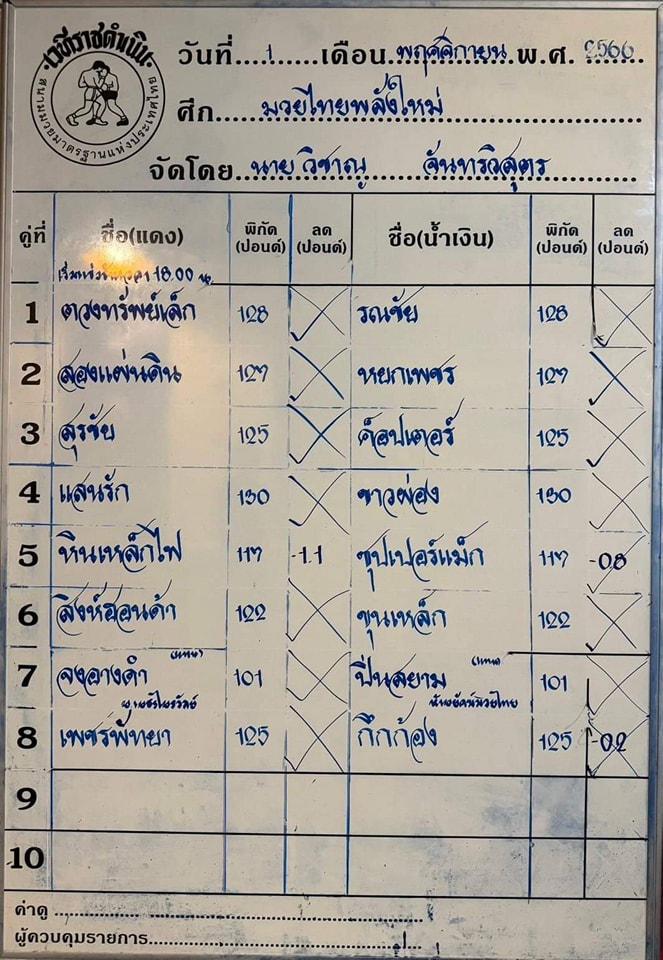 เวทีราชดำเนิน
สนามมวยมาตรฐานแห่งประเทศไทย
วันที่....1........เดือน..พฤศจิกายน..พ.ศ. 2566
ศึก......มวยไทยพลังใหม่
จัดโดย..นาย วิชาญ จันทรวิสุตร
คู่ที่ ชื่อ(แดง) พิกัด (ปอนด์) ลด (ปอนด์) ชื่อ(น้ำเงิน) พิกัด (ปอนด์) ลด (ปอนด์)
18.00 น.
1 ดวงทรัพย์เล็ก 128 รณชัย 128
2 สองแผ่นดิน 127 หยกเพชร 127
3 สุรชัย 125 ค็อปเตอร์ 125
4 แสนรัก 130 ขาวผ่อง 130
5 หินเหล็กไฟ 117 -1.1 ซุปเปอร์แม็ก 117 -0.8
6 สิงห์ฮอนด้า 122 ขุนเหล็ก 122
(แทน) (แทน)
7 จงอางดำ 101 ปืนสยาม 101
น้ำยอัศวินมวยไทย
8 เพชรพัทยา 125 กึกก้อง 125 -0.2
9
10
ค่าดู
ผู้ควบคุมรายการ